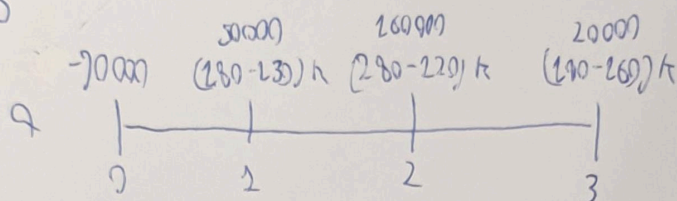 50000 160000 20000
-70000 (180-130)k (280-120)k (180-160)k
a
0 1 2 3